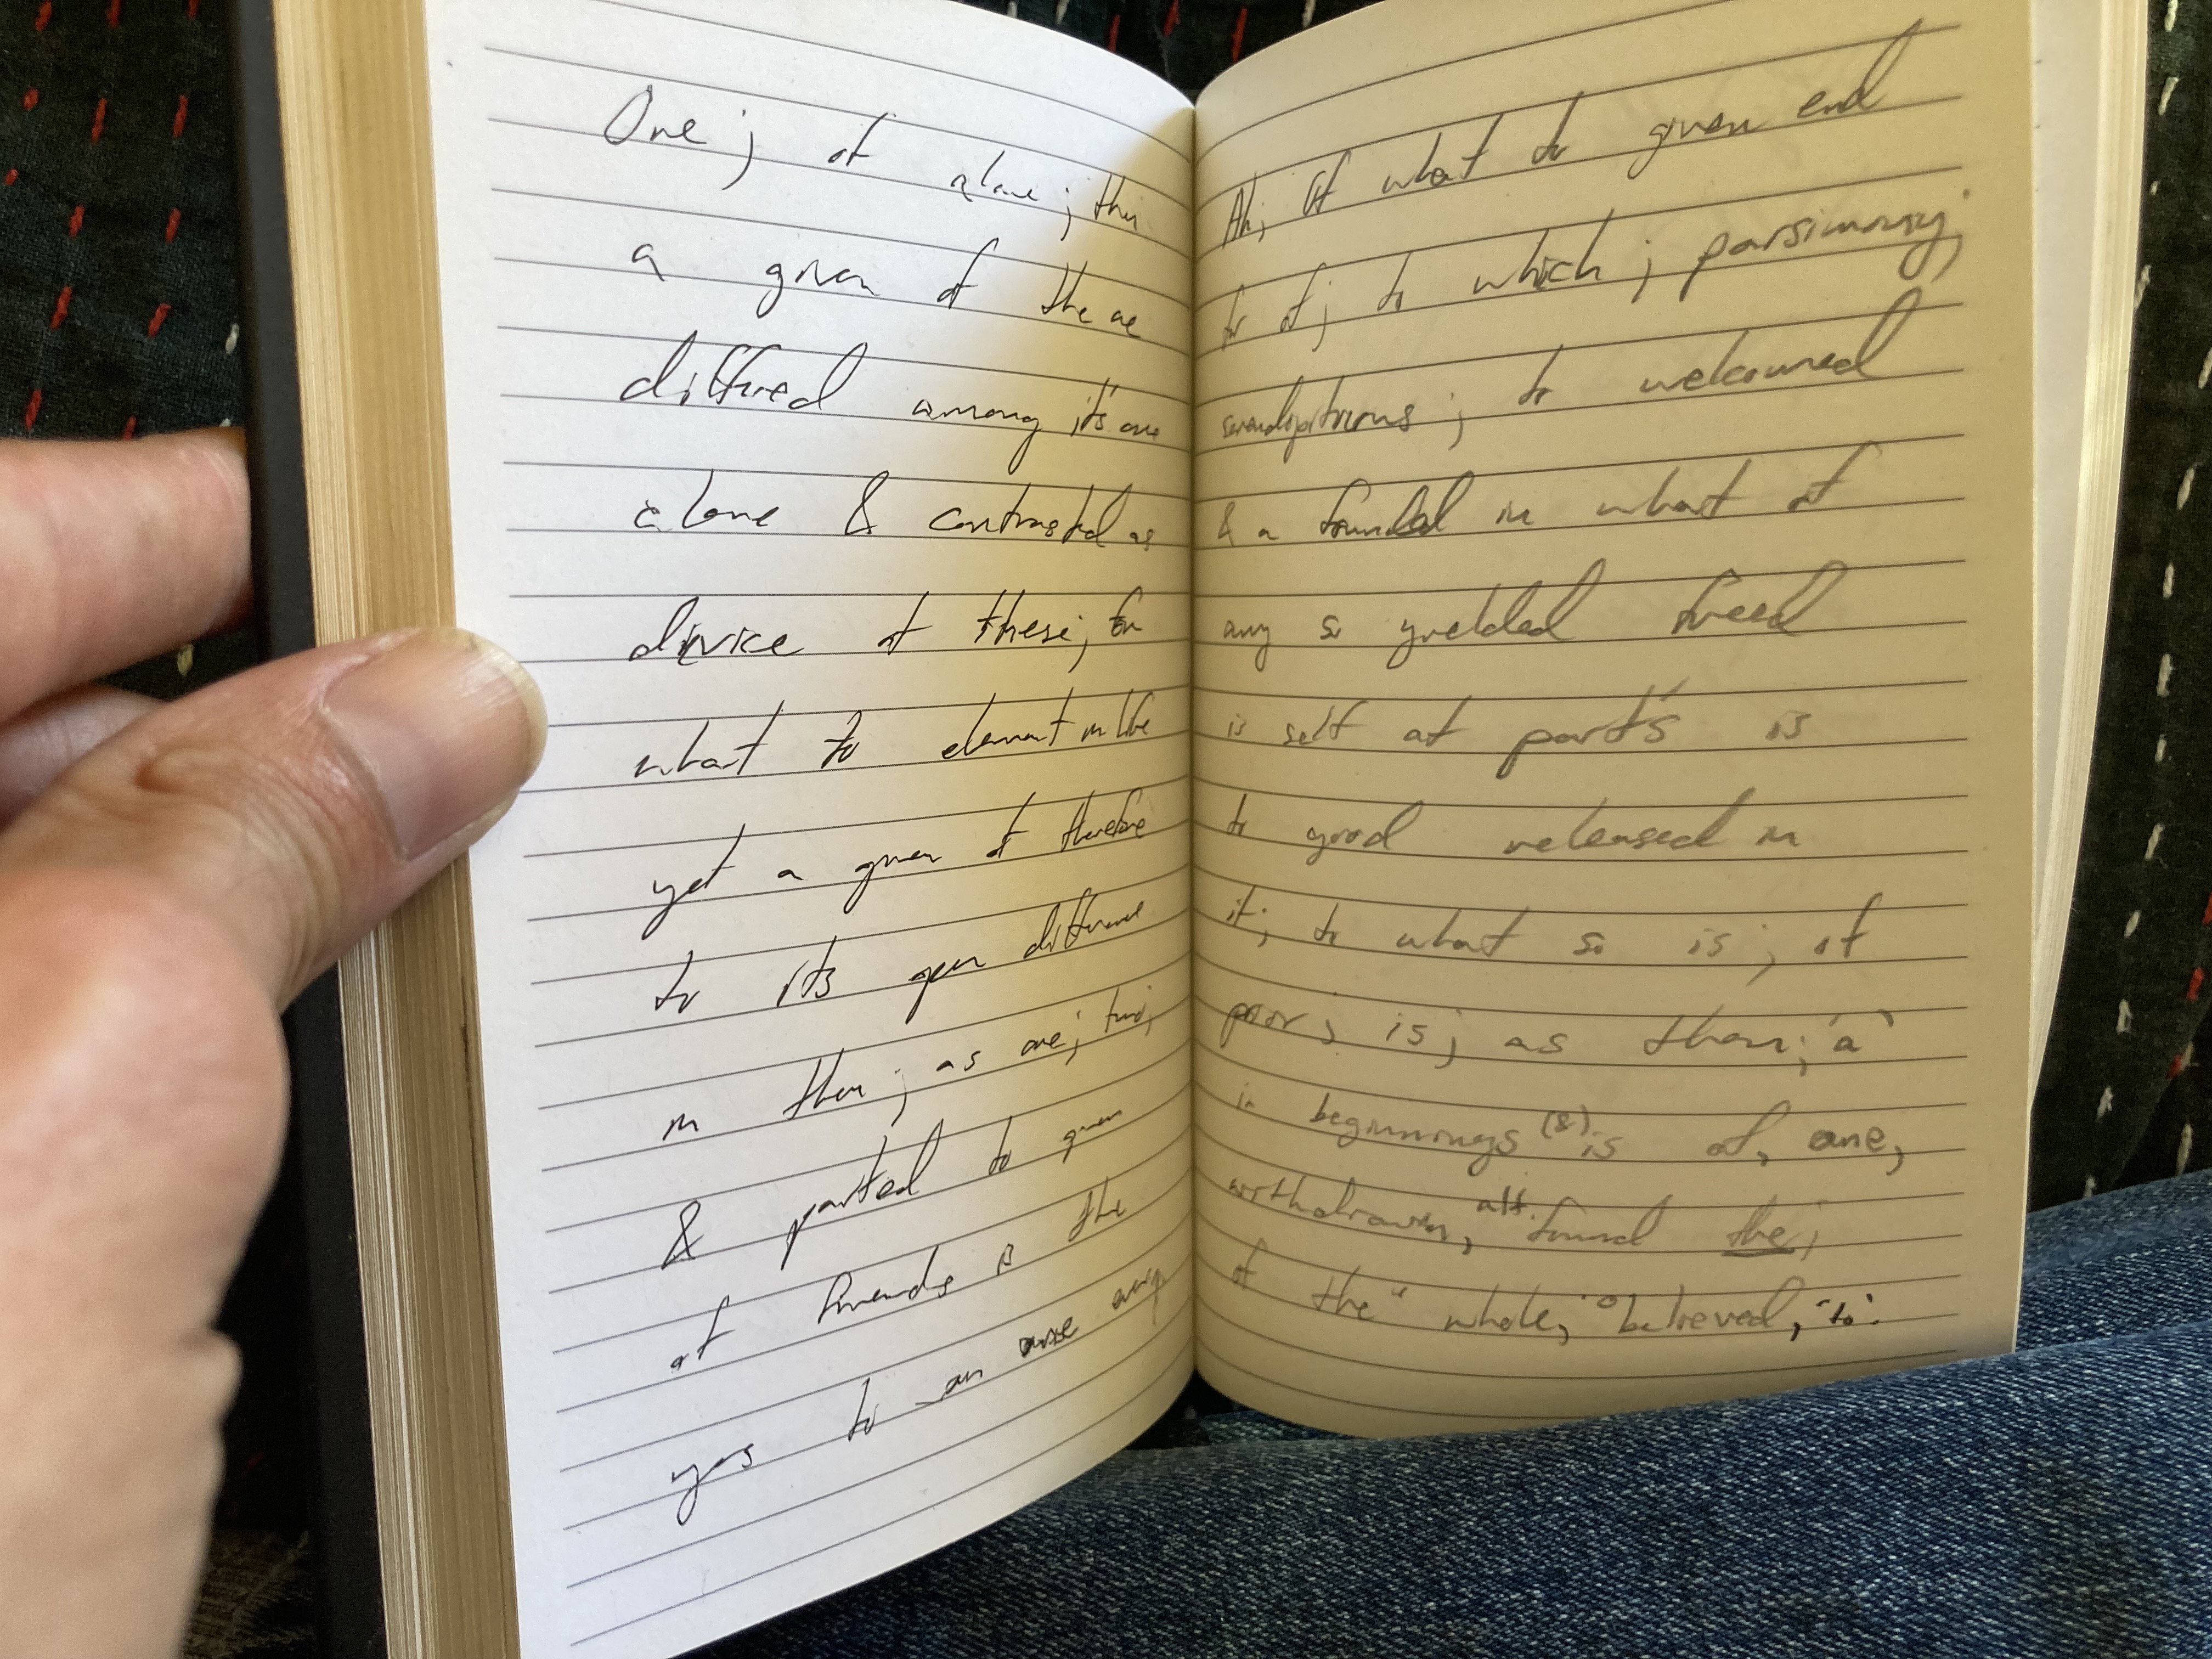 One; of alone; then
a given of the one
differed among it's one
alone & contrasted as
device of these; for
what to element in life
yet a given of therefore
to its given difference
in then; as one; two;
& parted to given
of friends is the
yes to an one any
Ah; of what to given end
for of; to which; parsimony;
serendipitous; to welcomed
& a founded in what of
any so yielded freed
is self at part's is
to good released in
it; to what so is; of
poor; is; as then; 'a'
in beginnings (&) is of, one,
withdrawn, alt. found the;
of the "whole," believed, 'to'.